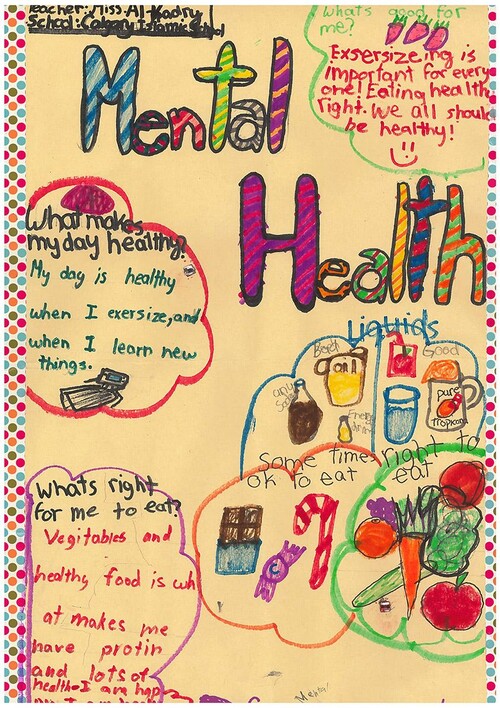 Teacher: Miss Al-Kadry
School: Calgary Islamic School
Mental
Health
whats good for
me?
Exsersizeing is
important for every
one! Eating health
right. We all should
be healthy!
What makes
my day healthy?
My day is healthy
when I exersize, and
when I learn new
things.
Liquids
oil
any
Soda
Energy
drink
Good
pure
Tropicana
Some times
ok to eat
right to
eat
whats right
for me to eat?
Vegitables and
healthy food is wh
at makes me
have protin
and lots of
health. I am hap
Mental